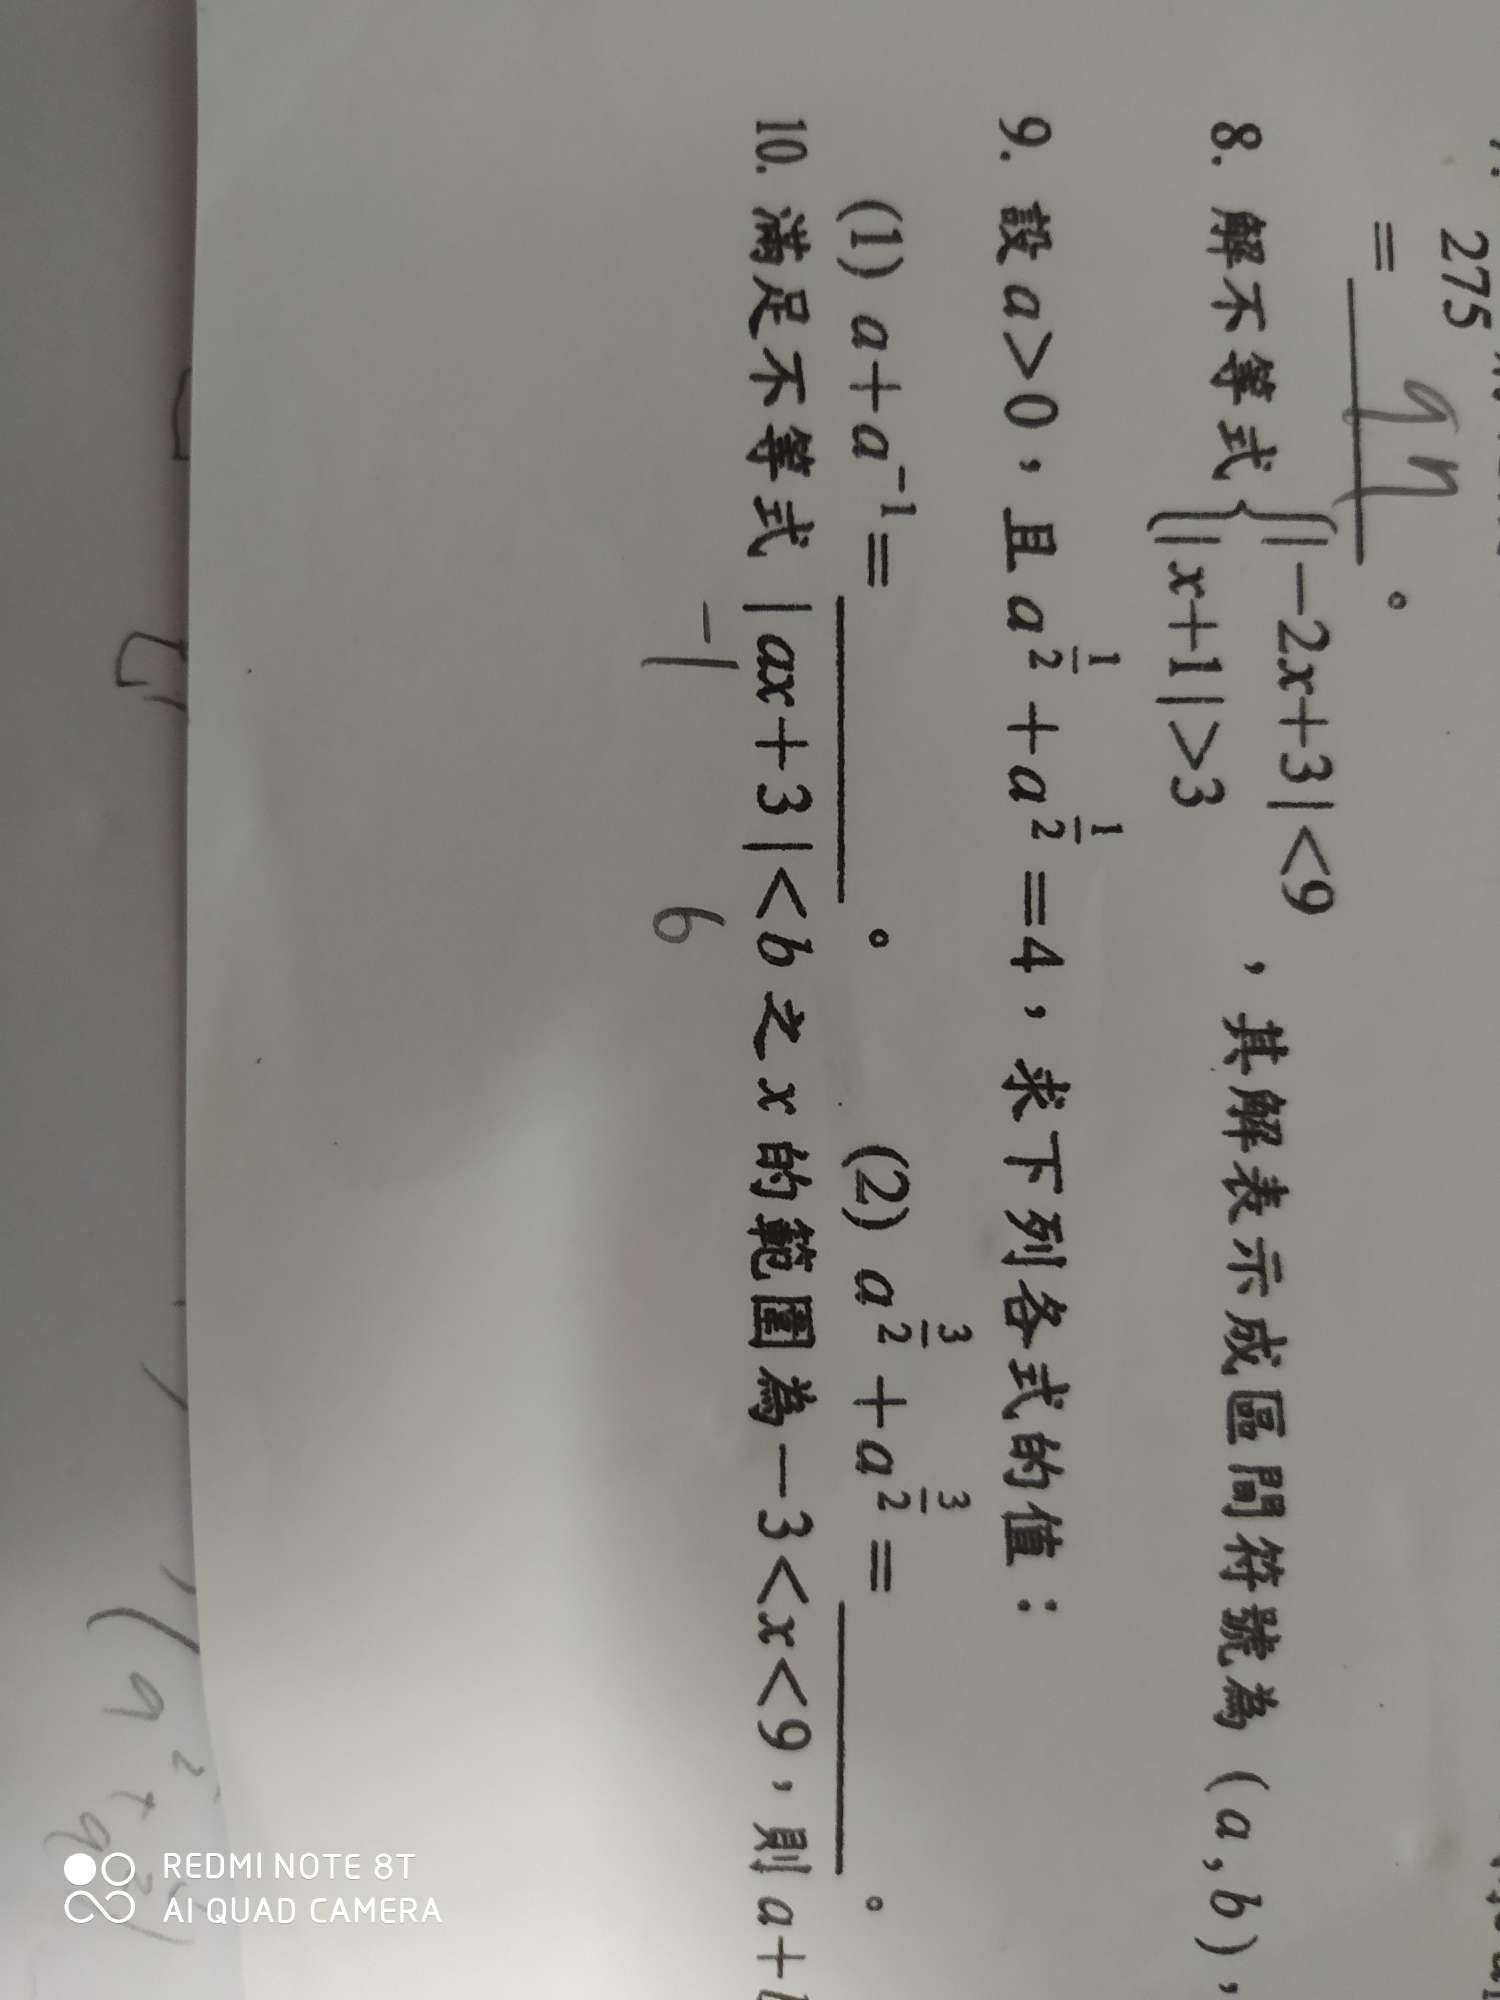 275
= 94 。
8. 解不等式 { |−2x+3|<9
|x+1|>3 ，其解表示成區間符號為 (a,b)，
9. 設 a>0，且 a^{1/2}+a^{1/2}=4，求下列各式的值：
(1) a+a^{-1}= 。 (2) a^{3/2}+a^{3/2}= 。
10. 滿足不等式 |ax+3|<b 之 x 的範圍為 −3<x<9，則 a+
-1 6
REDMI NOTE 8T
AI QUAD CAMERA